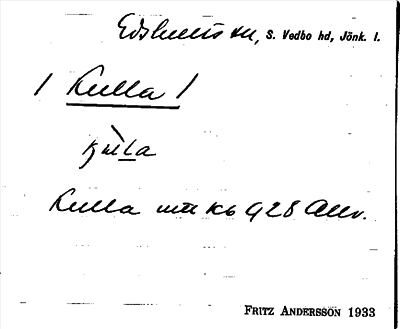 Edshults sn, S. Vedbo hd, Jönk. l.
/ Kulla /
Kulla mtl Kb 928 Allv.
FRITZ ANDERSSON 1933